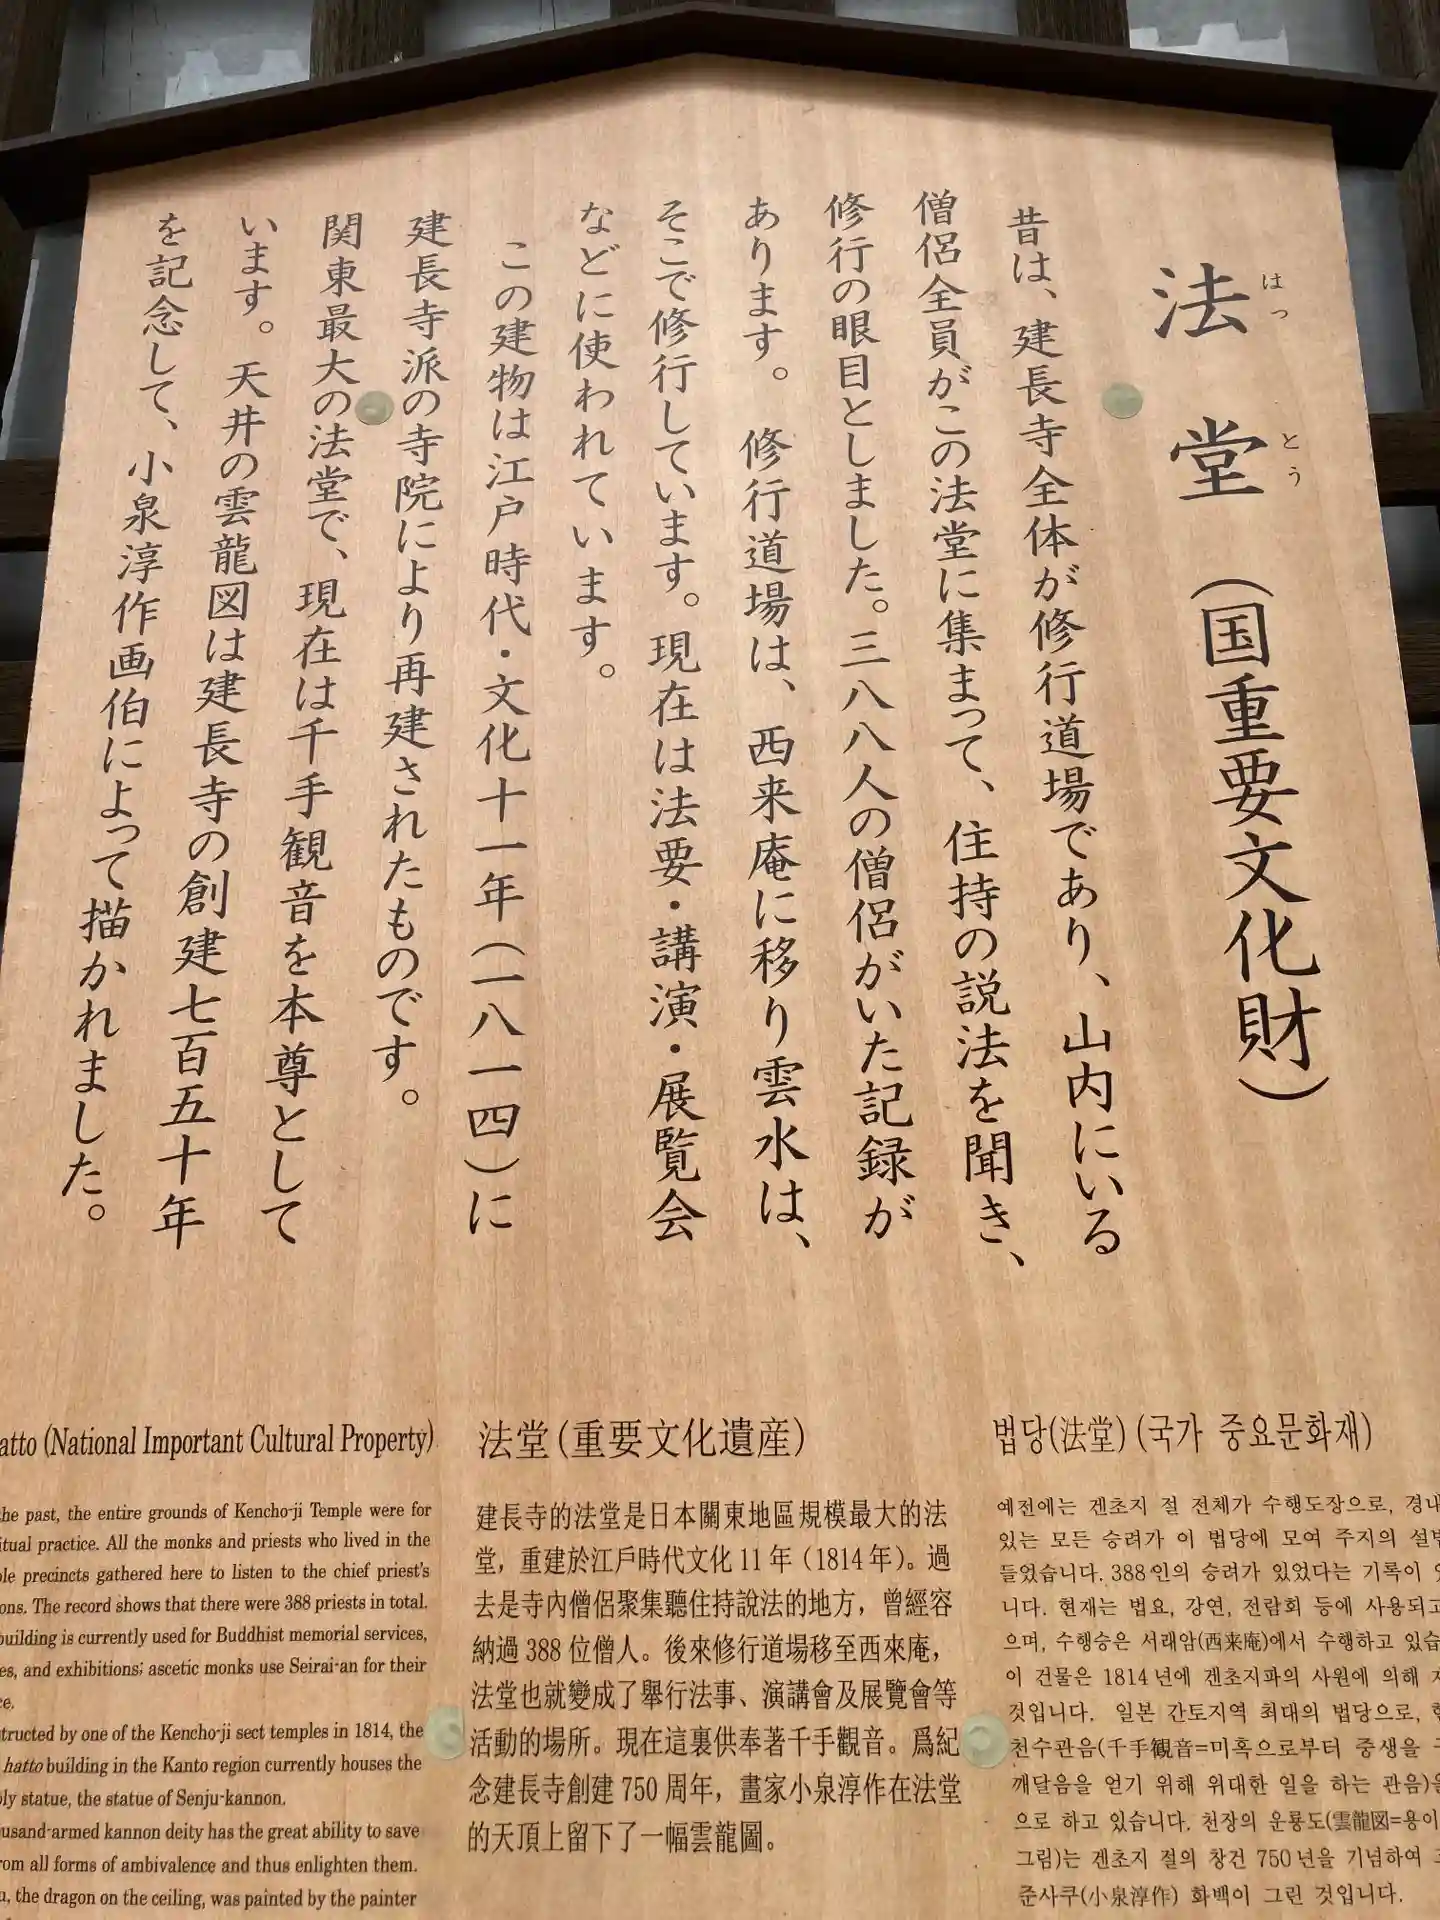 法堂(国重要文化財)
はっとう
昔は、建長寺全体が修行道場であり、山内にいる
僧侶全員がこの法堂に集まって、住持の説法を聞き、
修行の眼目としました。三八八人の僧侶がいた記録が
あります。 修行道場は、西来庵に移り雲水は、
そこで修行しています。現在は法要・講演・展覧会
などに使われています。
この建物は江戸時代・文化十一年(一八一四)に
建長寺派の寺院により再建されたものです。
関東最大の法堂で、現在は千手観音を本尊として
います。天井の雲龍図は建長寺の創建七百五十年
を記念して、小泉淳作画伯によって描かれました。
atto (National Important Cultural Property)
the past, the entire grounds of Kencho-ji Temple were for
itual practice. All the monks and priests who lived in the
ple precincts gathered here to listen to the chief priest's
ons. The record shows that there were 388 priests in total.
building is currently used for Buddhist memorial services,
es, and exhibitions; ascetic monks use Seirai-an for their
ce.
structed by one of the Kencho-ji sect temples in 1814, the
hatto building in the Kanto region currently houses the
oly statue, the statue of Senju-kannon.
usand-armed kannon deity has the great ability to save
rom all forms of ambivalence and thus enlighten them.
u, the dragon on the ceiling, was painted by the painter
法堂(重要文化遺産)
建長寺的法堂是日本關東地區規模最大的法
堂，重建於江戶時代文化 11 年（1814 年）。過
去是寺內僧侶聚集聽住持說法的地方，曾經容
納過 388 位僧人。後來修行道場移至西來庵，
法堂也就變成了舉行法事、演講會及展覽會等
活動的場所。現在這裏供奉著千手觀音。爲紀
念建長寺創建 750 周年，畫家小泉淳作在法堂
的天頂上留下了一幅雲龍圖。
법당(法堂) (국가 중요문화재)
예전에는 겐초지 절 전체가 수행도장으로, 경내
있는 모든 승려가 이 법당에 모여 주지의 설법
들었습니다. 388인의 승려가 있었다는 기록이
니다. 현재는 법요, 강연, 전람회 등에 사용되고
으며, 수행승은 서래암(西来庵)에서 수행하고 있습
이 건물은 1814년에 겐초지파의 사원에 의해
것입니다. 일본 간토지역 최대의 법당으로,
천수관음(千手観音=미혹으로부터 중생을
깨달음을 얻기 위해 위대한 일을 하는 관음)을
으로 하고 있습니다. 천장의 운룡도(雲龍図=용이
그림)는 겐초지 절의 창건 750년을 기념하여
준사쿠(小泉淳作) 화백이 그린 것입니다.